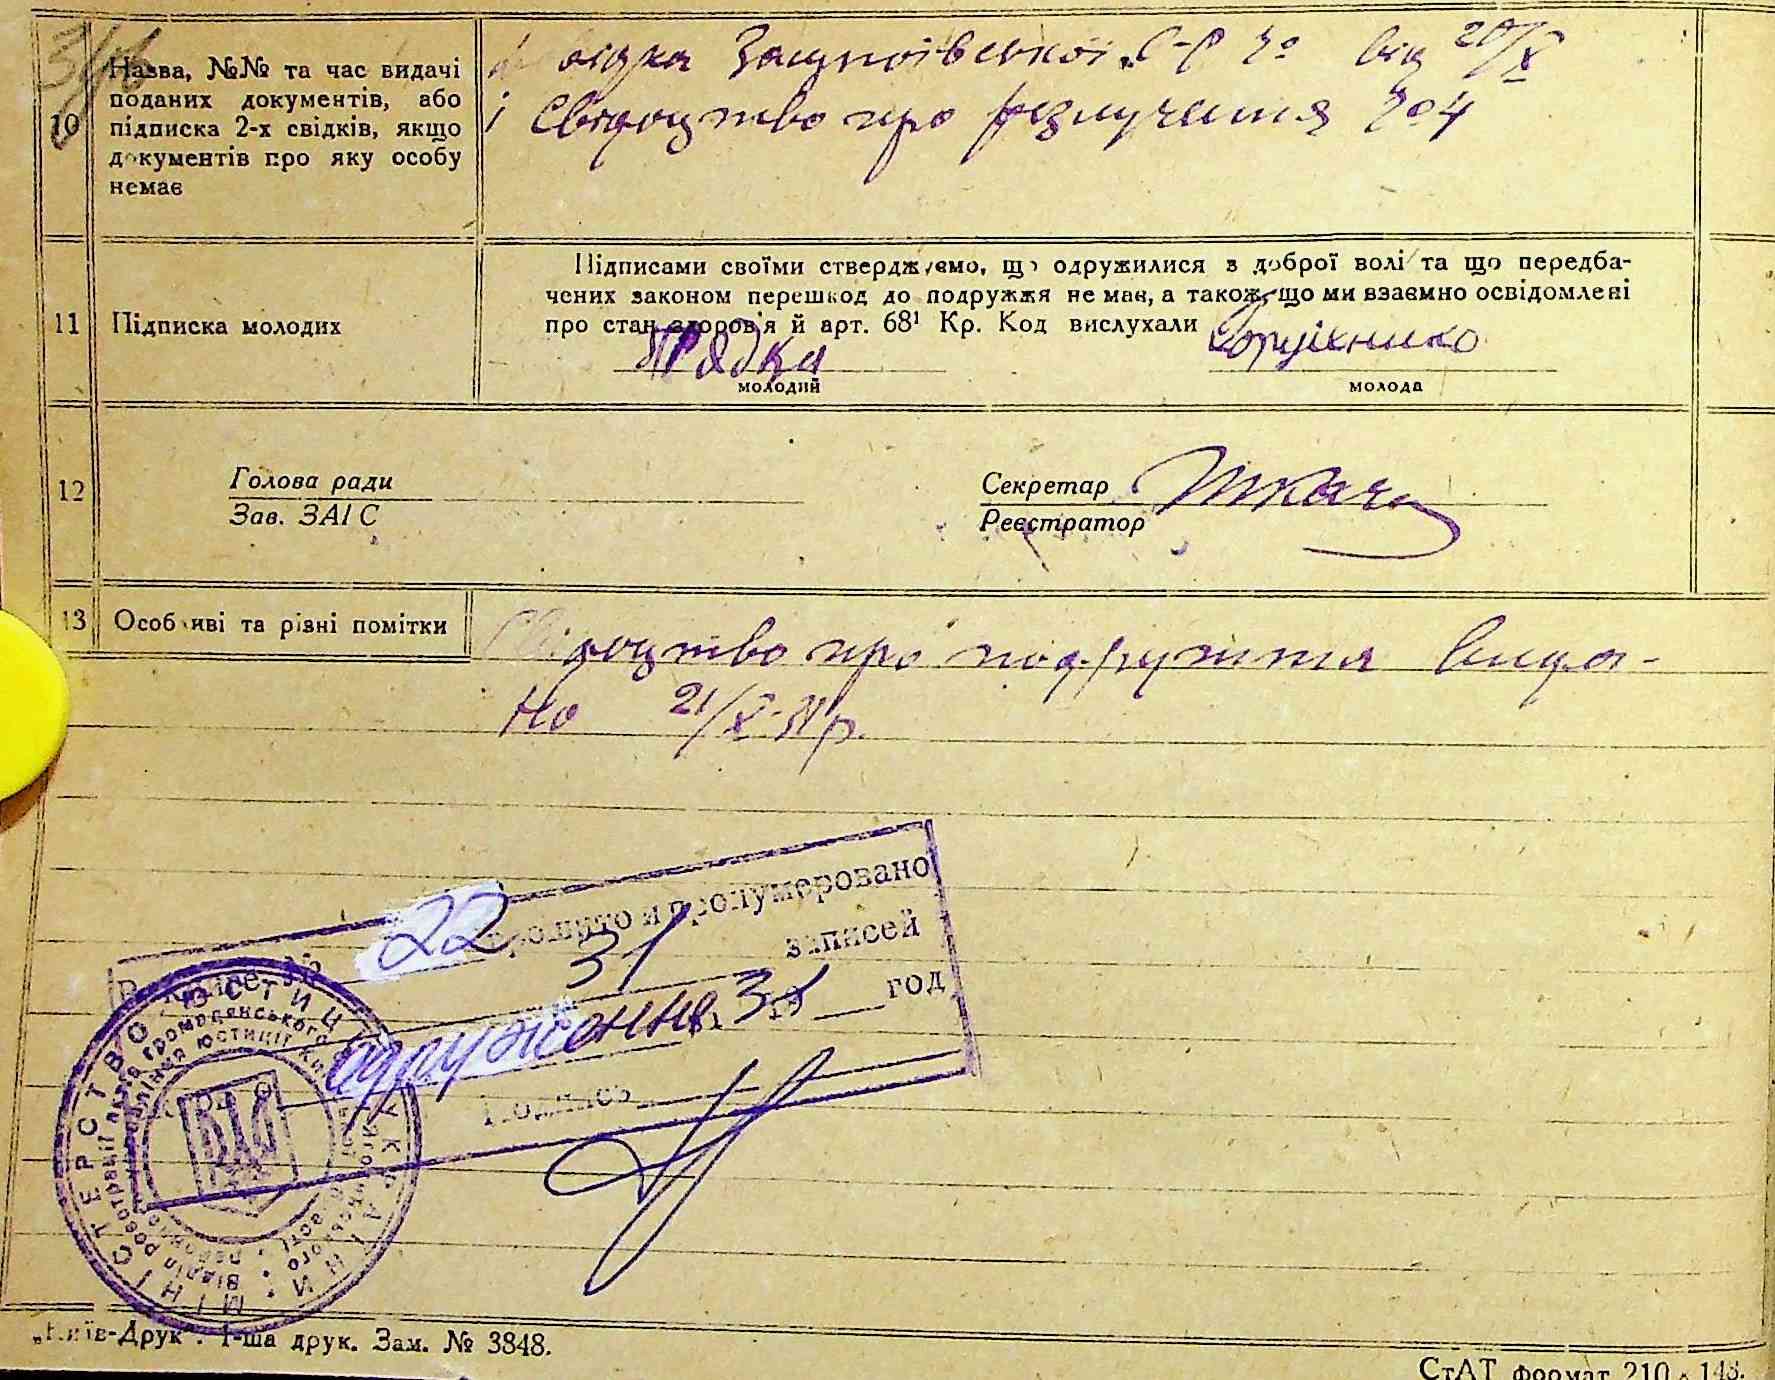 10 Назва, №№ та час видачі
поданих документів, або
підписка 2-х свідків, якщо
документів про яку особу
немає
С-Р № від 20/X
і Свідоцтво про розлучення №4
11 Підписка молодих
Підписами своїми стверджуємо, що одружилися з доброї волі та що передба-
чених законом перешкод до подружжя не має, а також, що ми взаємно освідомлені
про стан здоров'я й арт. 68¹ Кр. Код вислухали
Прядка
молодий
молода
12 Голова ради
Зав. ЗАІС
Секретар Ткач
Реєстратор
13 Особливі та різні помітки
Свідоцтво про подружжя вида-
но 21/X
22 прошито и пронумеровано
31 записей
одруження 19 год
Подпись
МІНІСТЕРСТВО ЮСТИЦІЇ УКРАЇНИ
„Київ-Друк". 1-ша друк. Зам. № 3848.
СтАТ формат 210